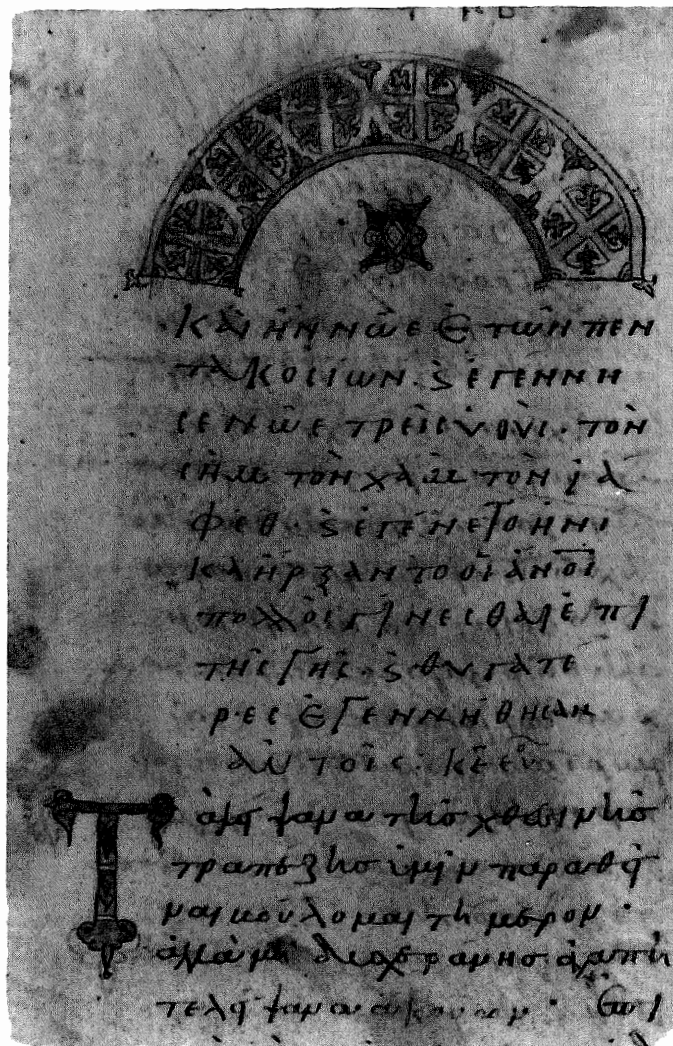 Καὶ ἦν νῶε ἐτῶν πεν
τακοσίων. ϛ ἐγέννη
σε νῶε τρεῖς υἱούς. τὸν
σὴμ τὸν χὰμ τὸν ἰά
φεθ. ϛ ἐγένετο ἡνί
κα ἤρξαντο οἱ ἄνοι
πολλοὶ γίνεσθαι ἐπὶ
τῆς γῆς. ϛ θυγατέ
ρες ἐγεννήθησαν
αὐτοῖς.
Τὰ λείψανα τῆς χθεσινῆς
τραπέζης ὑμῖν παραθεῖ
ναι βούλομαι τήμερον·
ἀλλὰ μὴ
λείψανα ἀκούων·